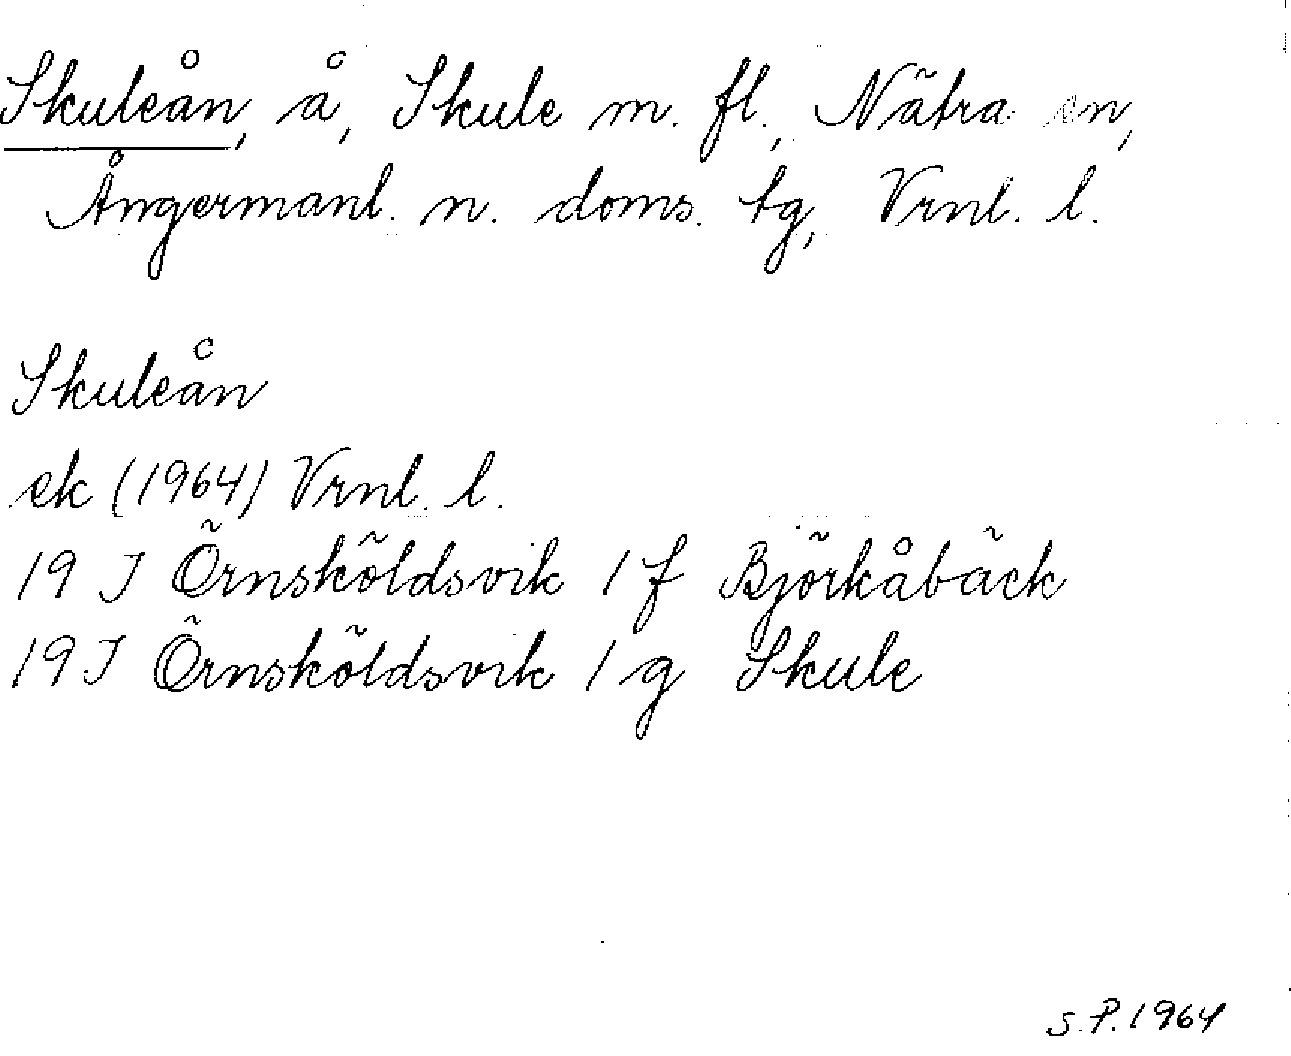 Skuleån, å, Skule m. fl., Nätra sn,
Ångermanl. n. doms. tg, Vrnl. l.
Skuleån
ek (1964) Vrnl. l.
19 J Örnsköldsvik 1 f Björkåbäck
19 J Örnsköldsvik 1 g Skule
S.P. 1964